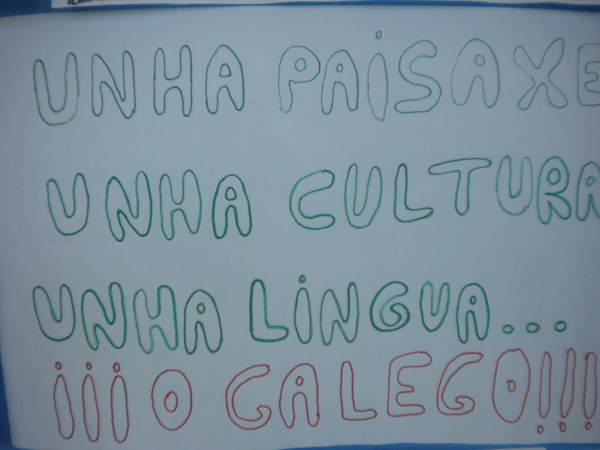 UNHA PAiSAXE
UNHA CULTURA
UNHA LiNGUA...
¡¡¡O GALEGO!!!